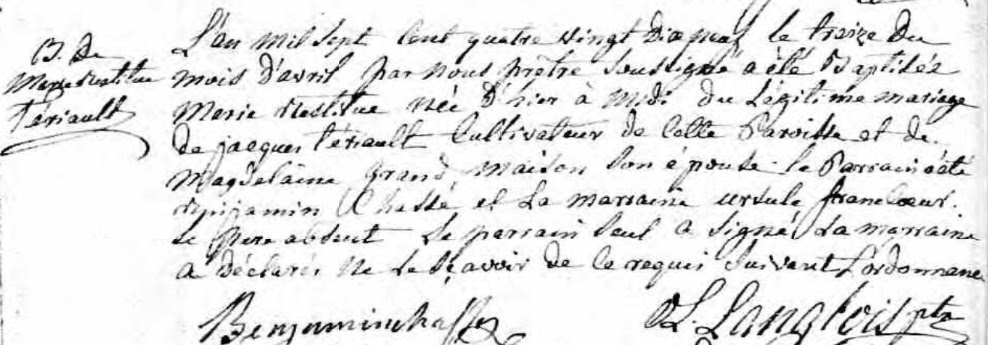 B. de
Marie Restitue
Tériault
L'an mil sept cent quatre vingt dix neuf le treize du
mois d'avril par nous prêtre soussigné a été Baptisée
Marie Restitue née d'hier à midi du légitime mariage
de jacques tériault Cultivateur de Cette Paroisse et de
Magdelaine grand maison son épouse le Parrain a été
Benjamin Chassé et la marraine ursule francoeur.
le pere absent le parrain seul a signé la marraine
a déclarée ne le sçavoir de ce requei suivant l'ordonnane
Benjamin chassez
L. Langlois ptr